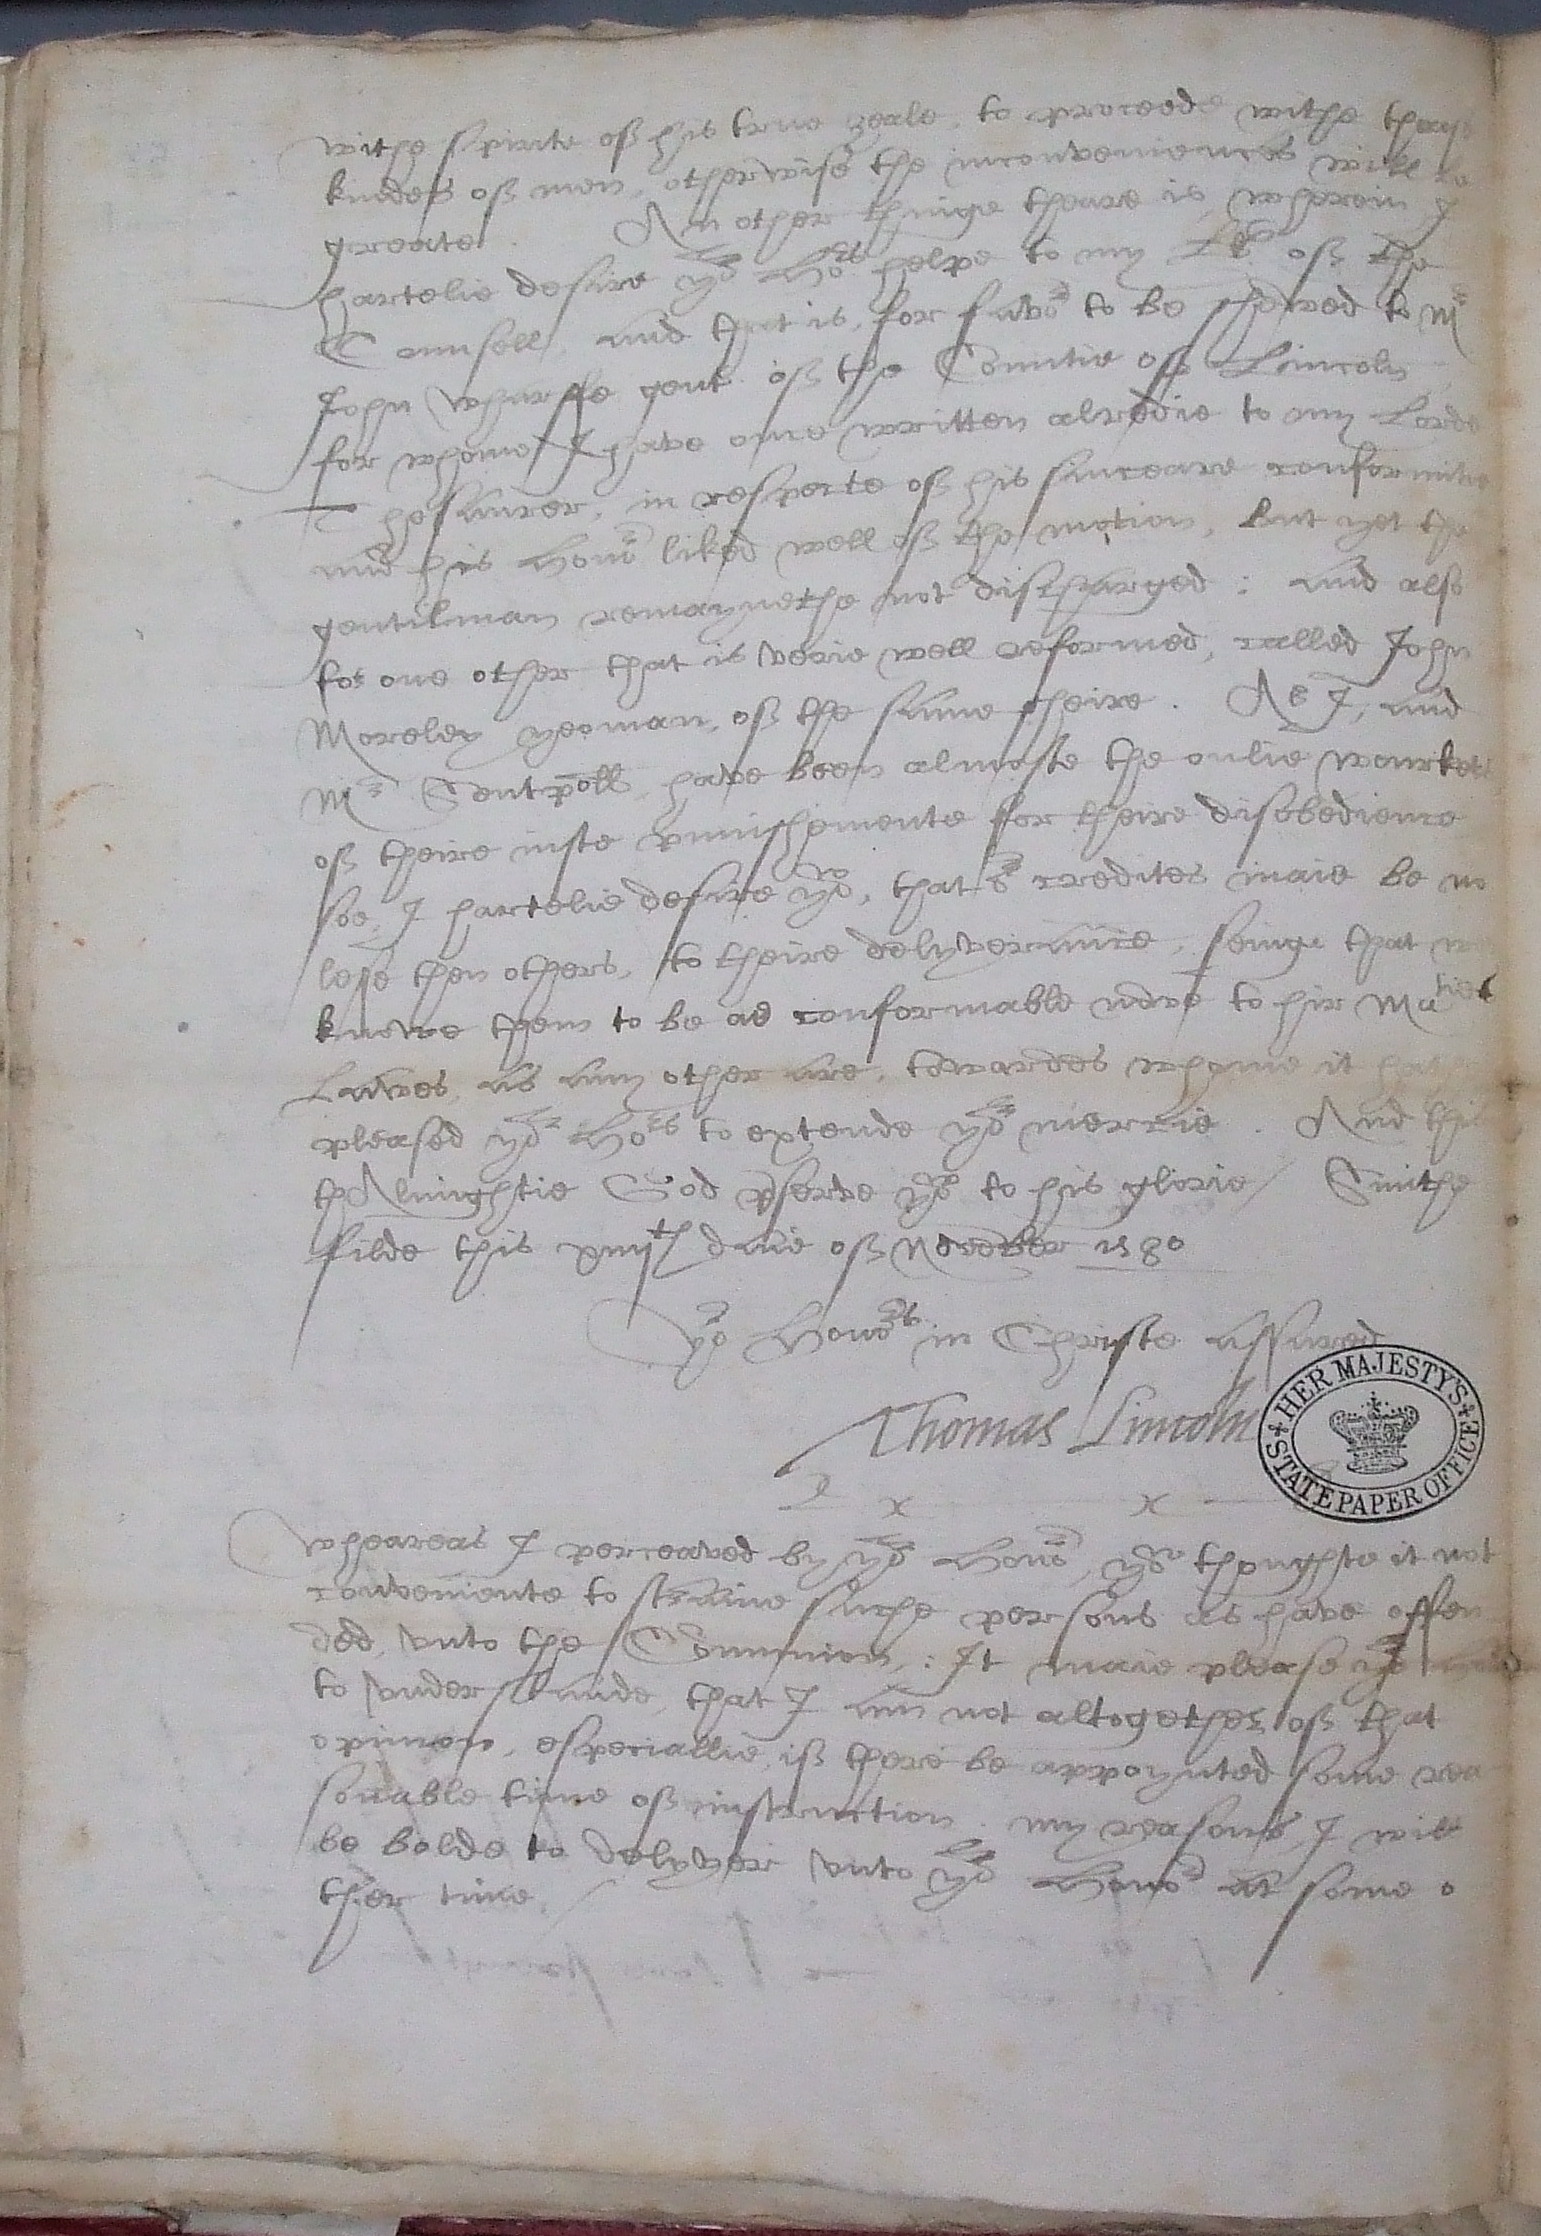 withe spirite of his true zeale, to proceede withe theise
kindes of men, otherwise the inconveniences will be
greate. An other thinge theare is, wherein I
hartelie desire yor Hors helpe to my LLs of the
Counsell, and that is, for favor to be shewed to Mr
John Wharffe gent. of the Countie of Lincoln
for whome I have once written alredie to my Lorde
Thesaurer, in respecte of his sinceare conformitie
and his honor liked well of the motion, but yet the
gentilman remaynethe not discharged: and also
for one other that is verie well reformed, called John
Moreley yeoman, of the same sheire. As I, and
Mr Sentpoll, have been almoste the onlie wourkers
of theire iuste punishemente for theire disobedience
soe, I hartelie desire yow, that or credites maie be no
lesse then others, to theire delyveraunce, seinge that we
knowe them to be as conformable nowe to hir Maties
Lawes, as any other are, towardes whome it hath
pleased yor Hors to extende yor mercie. And this
thAlmightie God pserve yow to his glorie / Smithe
filde this xiiijth daie of November 1580
Yor Honors in Christe assured
Thomas Lincoln
x x
Wheareas I perceaved by yor Honor, yow thoughte it not
conveniente to straine suche persons as have offen
ded, unto the Communion,: It maie please yor honor
to understande, that I am not altogether of that
opinion, especiallie, if there be appoynted some rea
sonable time of instruction. my reasons, I will
be bolde to delyver unto yor Honor at some o
ther time. /
HER MAJESTY'S
STATE PAPER OFFICE